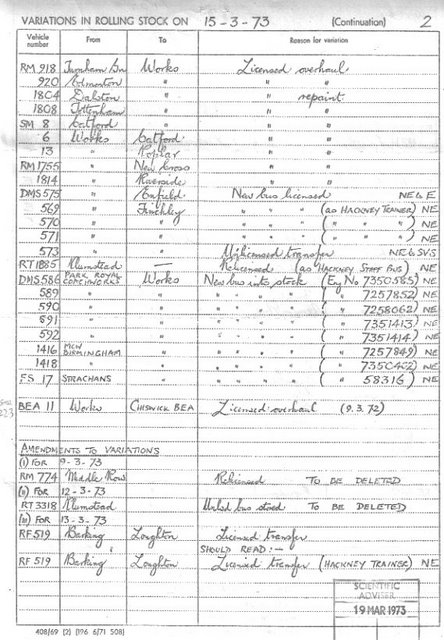 VARIATIONS IN ROLLING STOCK ON 15-3-73 (Continuation) 2
Vehicle number From To Reason for variation
RM 918 Turnham Gn Works Licensed overhaul
920 Edmonton " " "
1804 Dalston " " repaint
1808 Tottenham " " "
SM 8 Catford " " "
6 Works Catford " "
13 " Poplar " "
RM 1755 " New Cross " "
1814 " Riverside " "
DMS 575 " Enfield New bus licensed NE & E
569 " Finchley " " " (as HACKNEY TRAINER) NE
570 " " " " " ( " " " ) NE
571 " " " " " ( " " " ) NE
573 " " Unlicensed transfer NE & SVS
RT 1885 Plumstead — Relicensed (as HACKNEY STAFF BUS) NE
DMS 586 PARK ROYAL COACHWORKS Works New bus into stock (Eng No 7350585) NE
589 " " " " " " ( " 7257852) NE
590 " " " " " " ( " 7258062) NE
591 " " " " " " ( " 7351413) NE
592 " " " " " " ( " 7351414) NE
1416 MCW BIRMINGHAM " " " " " ( " 7257849) NE
1418 " " " " " " ( " 7350402) NE
FS 17 STRACHANS " " " " " ( " 58316) NE
BEA 11 Works CHISWICK BEA Licensed overhaul (9.3.72)
AMENDMENTS TO VARIATIONS
(i) FOR 9-3-73
RM 774 Middle Row Relicensed TO BE DELETED
(ii) FOR 12-3-73
RT 3318 Plumstead Unlcd bus stored TO BE DELETED
(iii) FOR 13-3-73
RF 519 Barking Loughton Licensed transfer
SHOULD READ:—
RF 519 Barking Loughton Licensed transfer (HACKNEY TRAINER) NE
SCIENTIFIC
ADVISER
19 MAR 1973
408/69 (2) (1196 6/71 508)